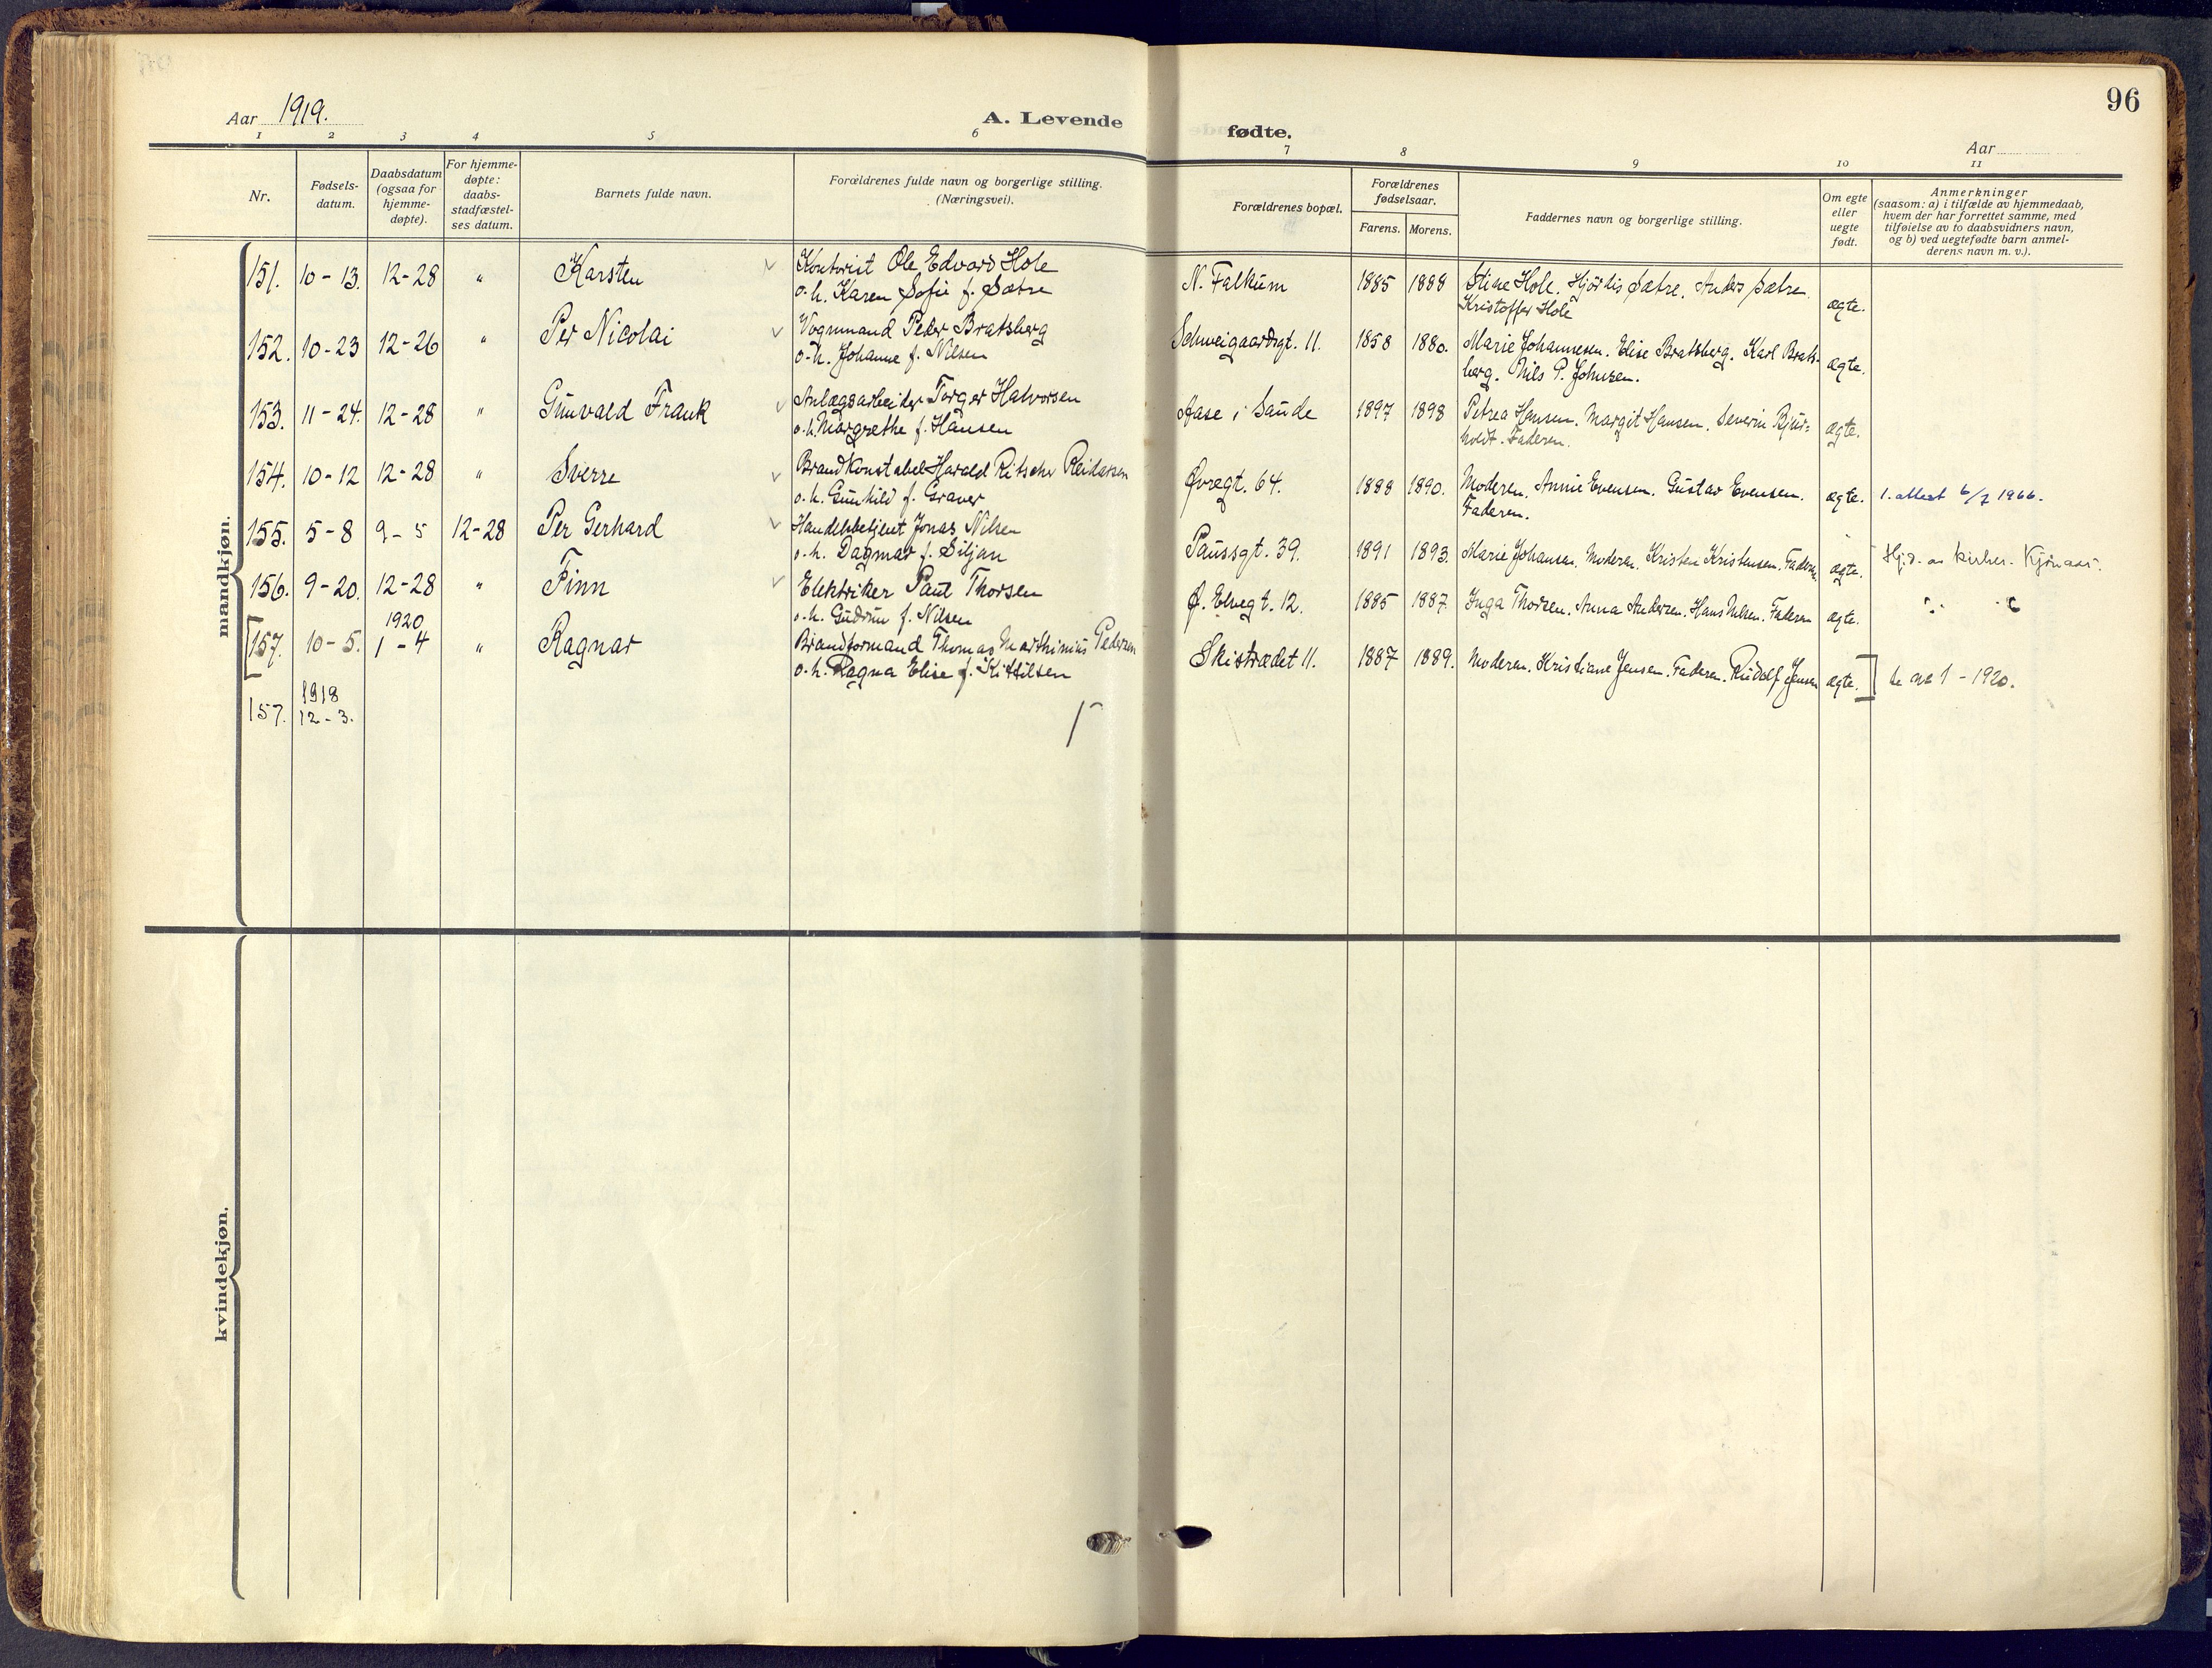 96
Aar 1919.
A. Levende fødte.
Aar
1 2 3 4 5 6 7 8 9 10 11
Nr.
Fødsels-
datum.
Daabsdatum
(ogsaa for
hjemme-
døpte).
For hjemme-
døpte:
daabs-
stadfæstel-
ses datum.
Barnets fulde navn.
Forældrenes fulde navn og borgerlige stilling.
(Næringsvei).
Forældrenes bopæl.
Forældrenes
fødselsaar.
Farens. Morens.
Faddernes navn og borgerlige stilling.
Om egte
eller
uegte
født.
Anmerkninger
(saasom: a) i tilfælde av hjemmedaab,
hvem der har forrettet samme, med
tilføielse av to daabsvidners navn,
og b) ved uegtefødte barn anmel-
derens navn m. v.).
mandkjøn.
151. 10-13. 12-28 " Karsten Kontorist Ole Edvard Hole N. Falkum 1885 1888 Stine Hole. Hjørdis Sætre. Anders Sætre.
o. h. Karen Sofie f. Sætre Kristoffer Hole ægte.
152. 10-23 12-26 " Per Nicolai Vognmand Peder Bratsberg Schweigaardsgt. 11. 1858 1880. Marie Johannesen. Elise Bratsberg. Karl Brats-
o. h. Johanne f. Nilsen berg. Nils P. Johnsen. ægte.
153. 11-24. 12-28 " Gunvald Frank Anlægsarbeider Torger Halvorsen Aase i Saude 1897 1898 Petrea Hansen. Margit Hansen. Severin Bjur-
o. h. Margrethe f. Hansen holdt. Faderen. ægte.
154. 10-12 12-28 " Sverre Brandkonstabel Harald Ritscher Reidarsen Øvregt. 64. 1888 1890. Moderen. Annie Evensen. Gustav Evensen.
o. h. Gunhild f. Graver Faderen. ægte. 1. attest 6/7 1966.
155. 5-8 9-5 12-28 Per Gerhard Handelsbetjent Jonas Nilsen Paussgt. 39. 1891 1893. Marie Johansen. Moderen. Kristen Kristensen. Faderen.
o. h. Dagmar f. Siljan ægte. Hj.d. av kirkes. Kjønaas.
156. 9-20. 12-28 " Finn Elektriker Paul Thorsen Ø. Elvegt. 12. 1885 1887. Inga Thorsen. Anna Andersen. Hans Nilsen. Faderen
o. h. Gudrun f. Nilsen ægte.
1920
[157. 10-5. 1-4 " Ragnar Brandformand Thomas Marthinius Pedersen Skistrædet 11. 1887 1889. Moderen. Kristiane Jensen. Faderen. Rudolf Jensen
o. h. Ragna Elise f. Kittilsen ægte.] Se nr 1 - 1920.
1918
157. 12-3.
kvindekjøn.